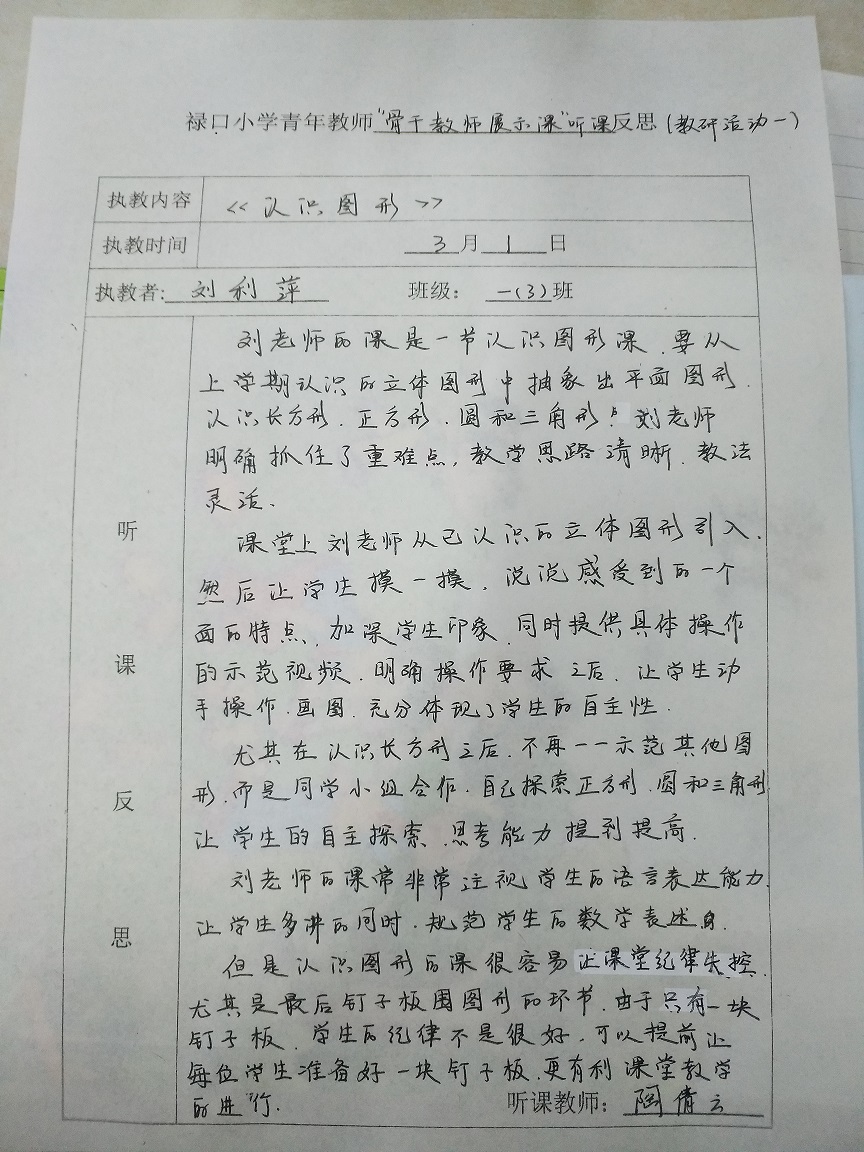 禄口小学青年教师“骨干教师展示课”听课反思(教研活动一)
执教内容 <<认识图形>>
执教时间 3月1日
执教者:刘利萍 班级：一(3)班
听课反思
刘老师的课是一节认识图形课.要从
上学期认识的立体图形中抽象出平面图形.
认识长方形.正方形.圆和三角形.刘老师
明确抓住了重难点,教学思路清晰.教法
灵活.
课堂上刘老师从已认识的立体图形引入.
然后让学生摸一摸.说说感受到的一个
面的特点.加深学生印象.同时提供具体操作
的示范视频.明确操作要求之后.让学生动
手操作.画图.充分体现了学生的自主性.
尤其在认识长方形之后.不再一一示范其他图
形.而是同学小组合作.自己探索正方形.圆和三角形
让学生的自主探索.思考能力提到提高.
刘老师的课常非常注视学生的语言表达能力.
让学生多讲的同时.规范学生的数学表述.
但是认识图形的课很容易让课堂纪律失控.
尤其是最后钉子板围图形的环节.由于只有一块
钉子板.学生的纪律不是很好.可以提前让
每位学生准备好一块钉子板.更有利课堂教学
的进行.
听课教师：陶倩云